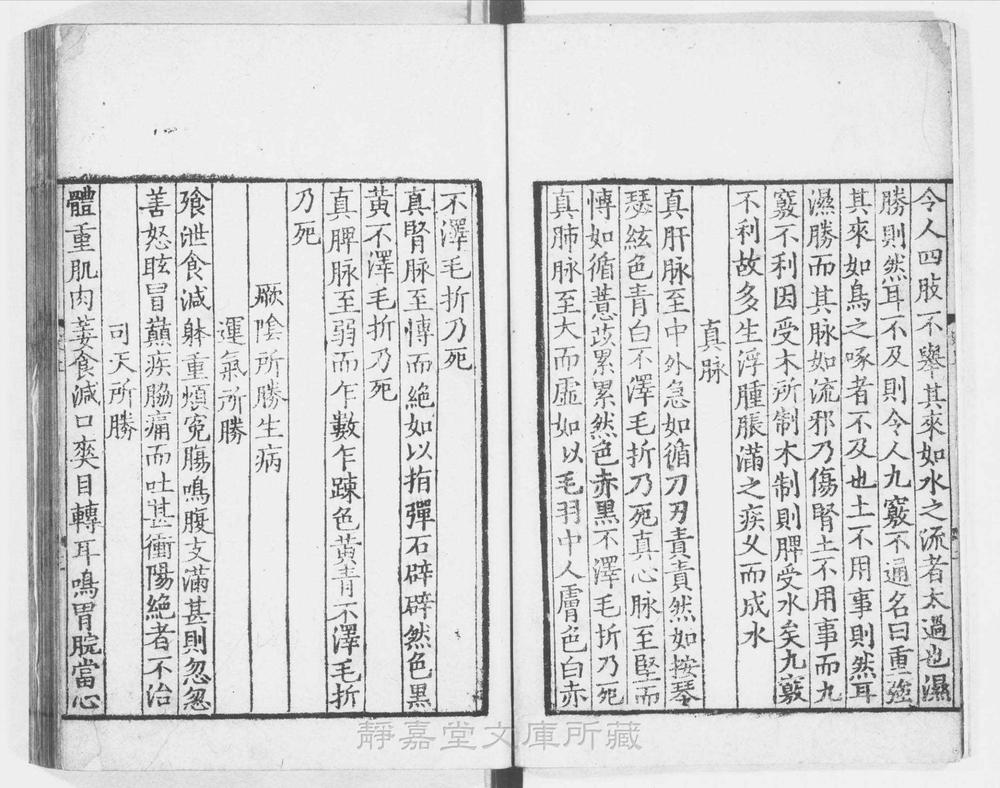 令人四肢不舉其來如水之流者太過也濕
勝則然耳不及則令人九竅不通名曰重強
其來如鳥之啄者不及也土不用事則然耳
濕勝而其脉如流邪乃傷腎土不用事而九
竅不利因受木所制木制則脾受水矣九竅
不利故多生浮腫脹滿之疾久而成水
真脉
真肝脉至中外急如循刀刃責責然如按琴
瑟絃色青白不澤毛折乃死真心脉至堅而
慱如循薏苡累累然色赤黑不澤毛折乃死
真肺脉至大而虛如以毛羽中人膚色白赤
不澤毛折乃死
真腎脉至慱而絶如以指彈石辟辟然色黑
黃不澤毛折乃死
真脾脉至弱而乍數乍踈色黃青不澤毛折
乃死
厥陰所勝生病
運氣所勝
飱泄食減躰重煩冤腸鳴腹支滿甚則忽忽
善怒眩冒巓疾脇痛而吐甚衝陽絶者不治
司天所勝
體重肌肉萎食減口爽目轉耳鳴胃脘當心
靜嘉堂文庫所藏